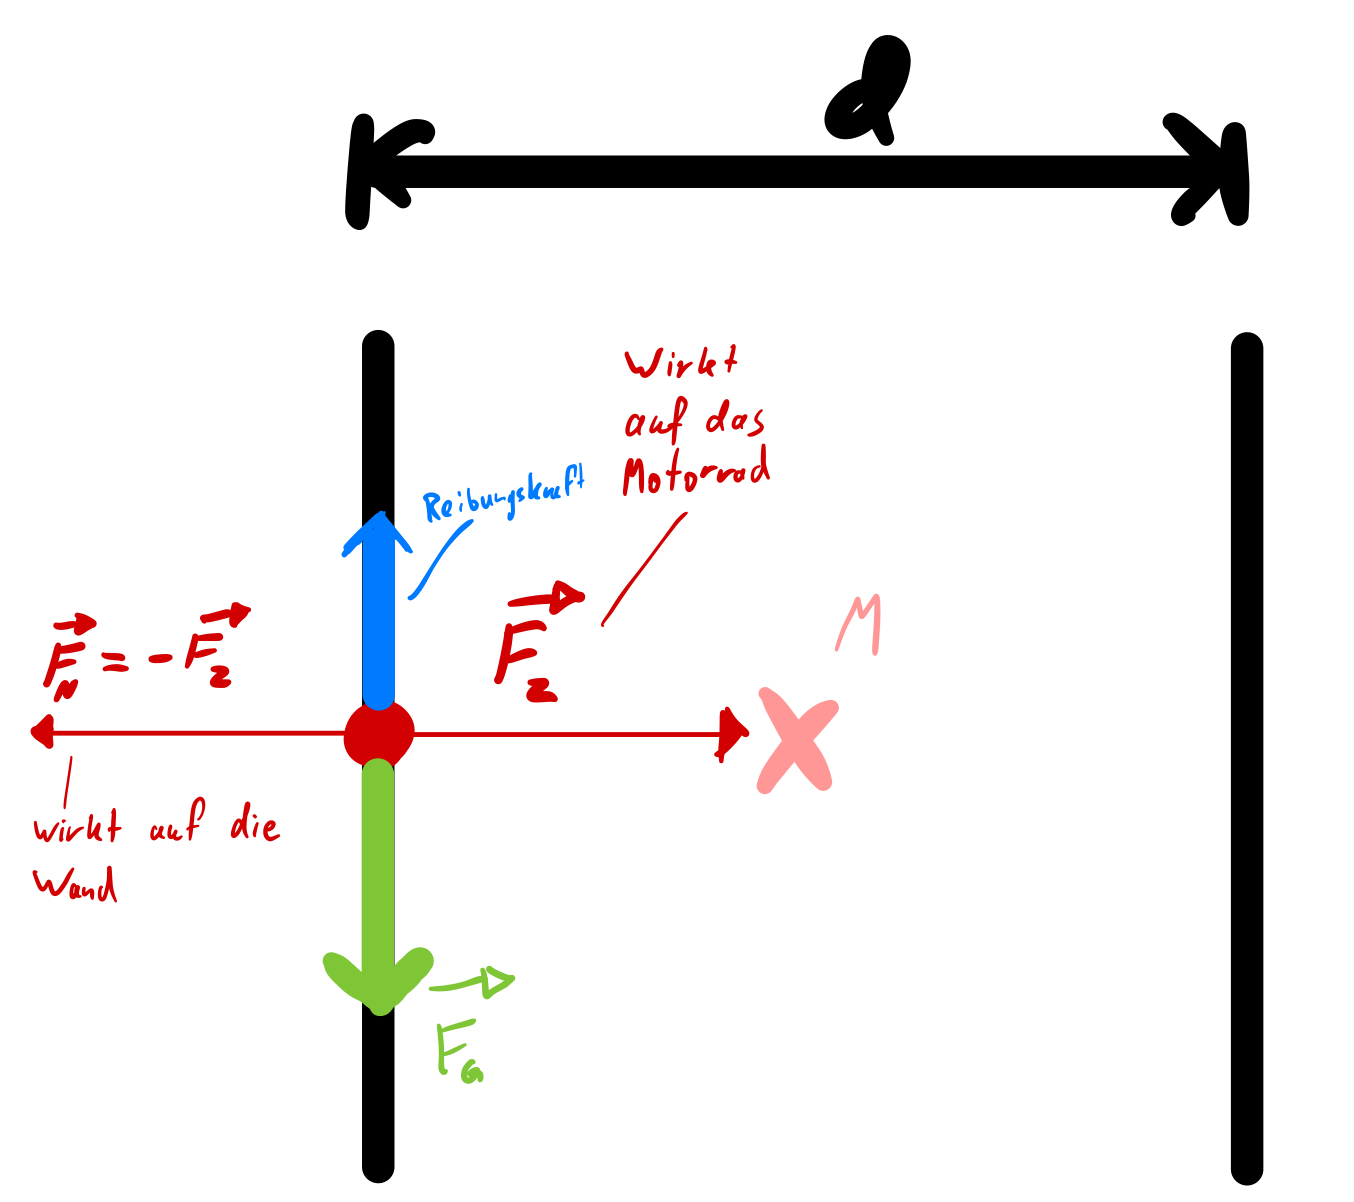 d
Wirkt
auf das
Motorrad
Reibungskraft
F_N = - F_z
F_z
M
wirkt auf die
Wand
F_G